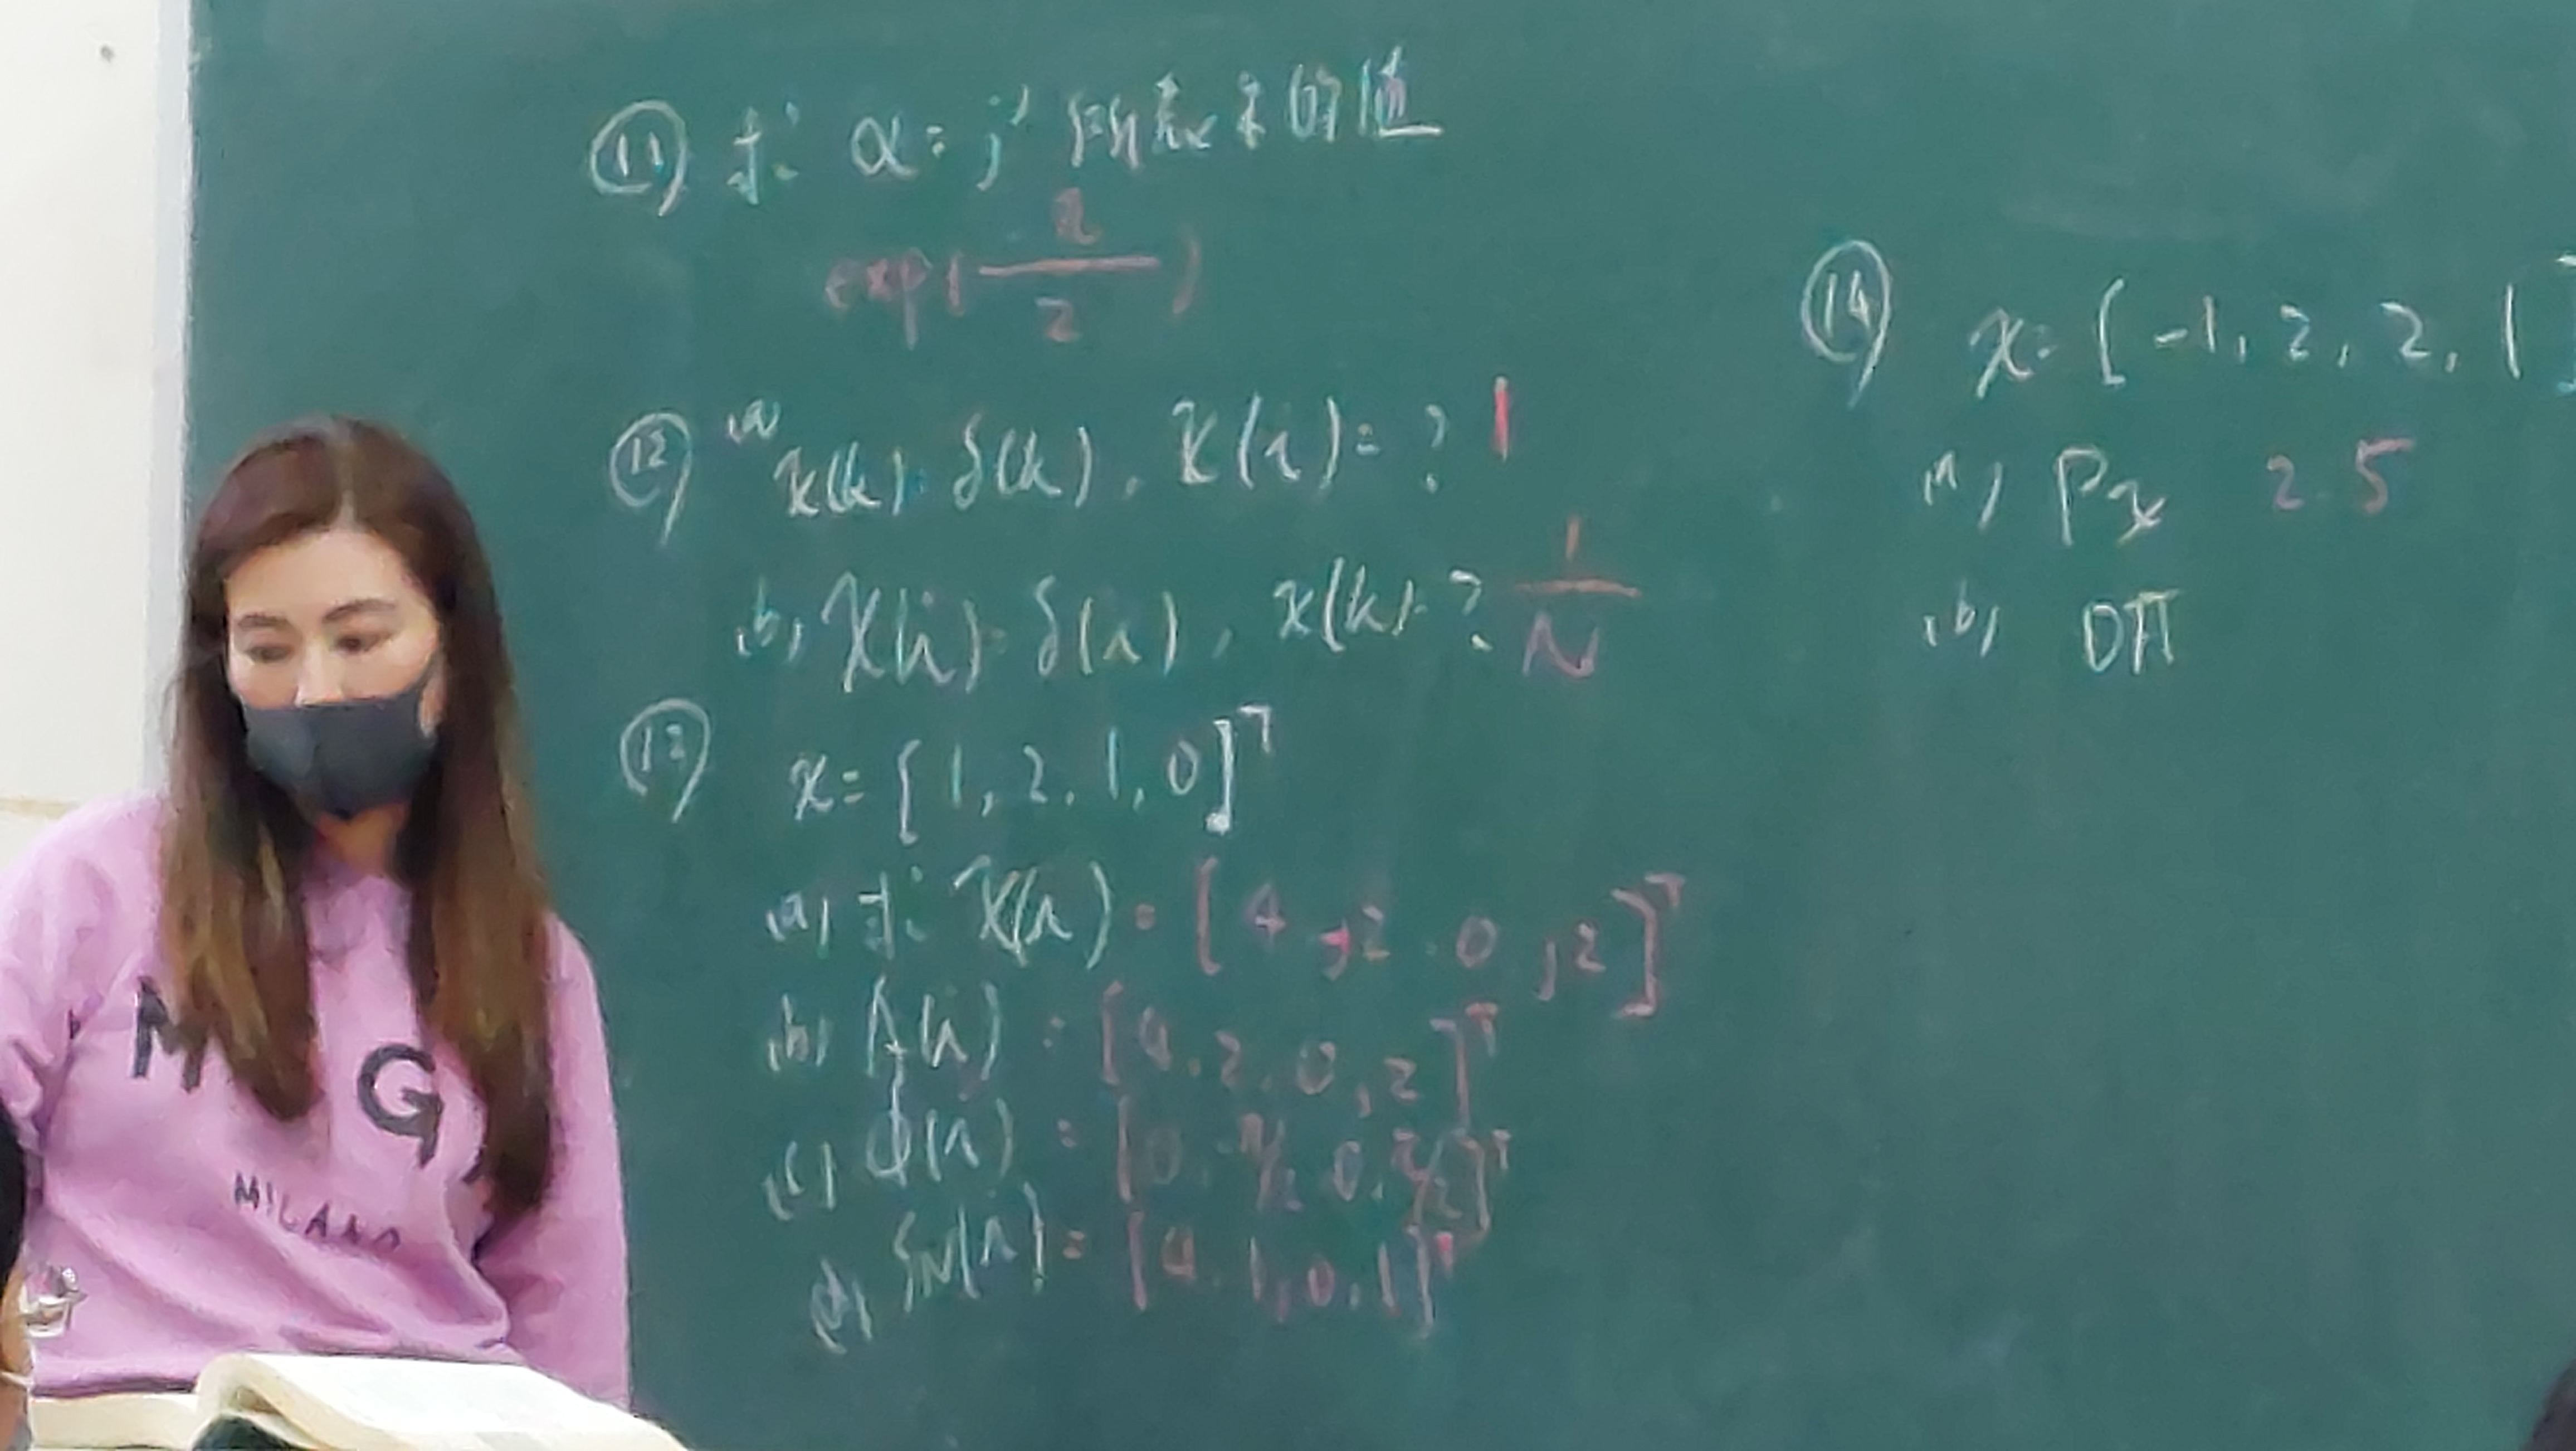 ⑪ 求 α = j^j 所表示的值
exp(-π/2)
⑫ (a) x(k) = δ(k), X(i) = ? 1
(b) X(i) = δ(i), x(k) = ? 1/N
⑬ x = [1, 2, 1, 0]^T
(a) 求 X(i) = [4, -j2, 0, j2]^T
(b) Ax(i) = [4, 2, 0, 2]^T
(c) ϕ(i) = [0, -π/2, 0, π/2]^T
(d) SN(i) = [4, 1, 0, 1]^T
⑭ x = [-1, 2, 2, 1]
(a) Px 2.5
(b)
M G
MILANO